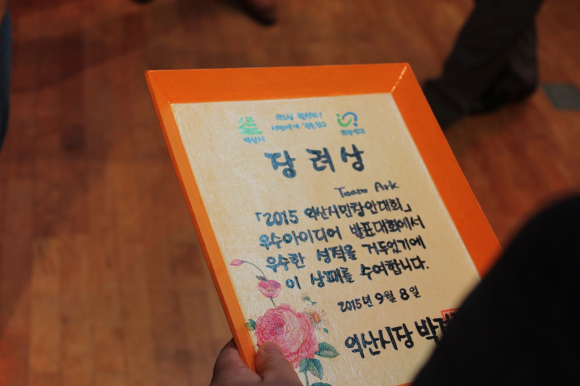 익산시
희망연대
장려상
Team Ark
「2015 익산시민창안대회」
우수아이디어 발표대회에서
우수한 성적을 거두었기에
이 상패를 수여합니다.
2015년 9월 8일
익산시장 박경